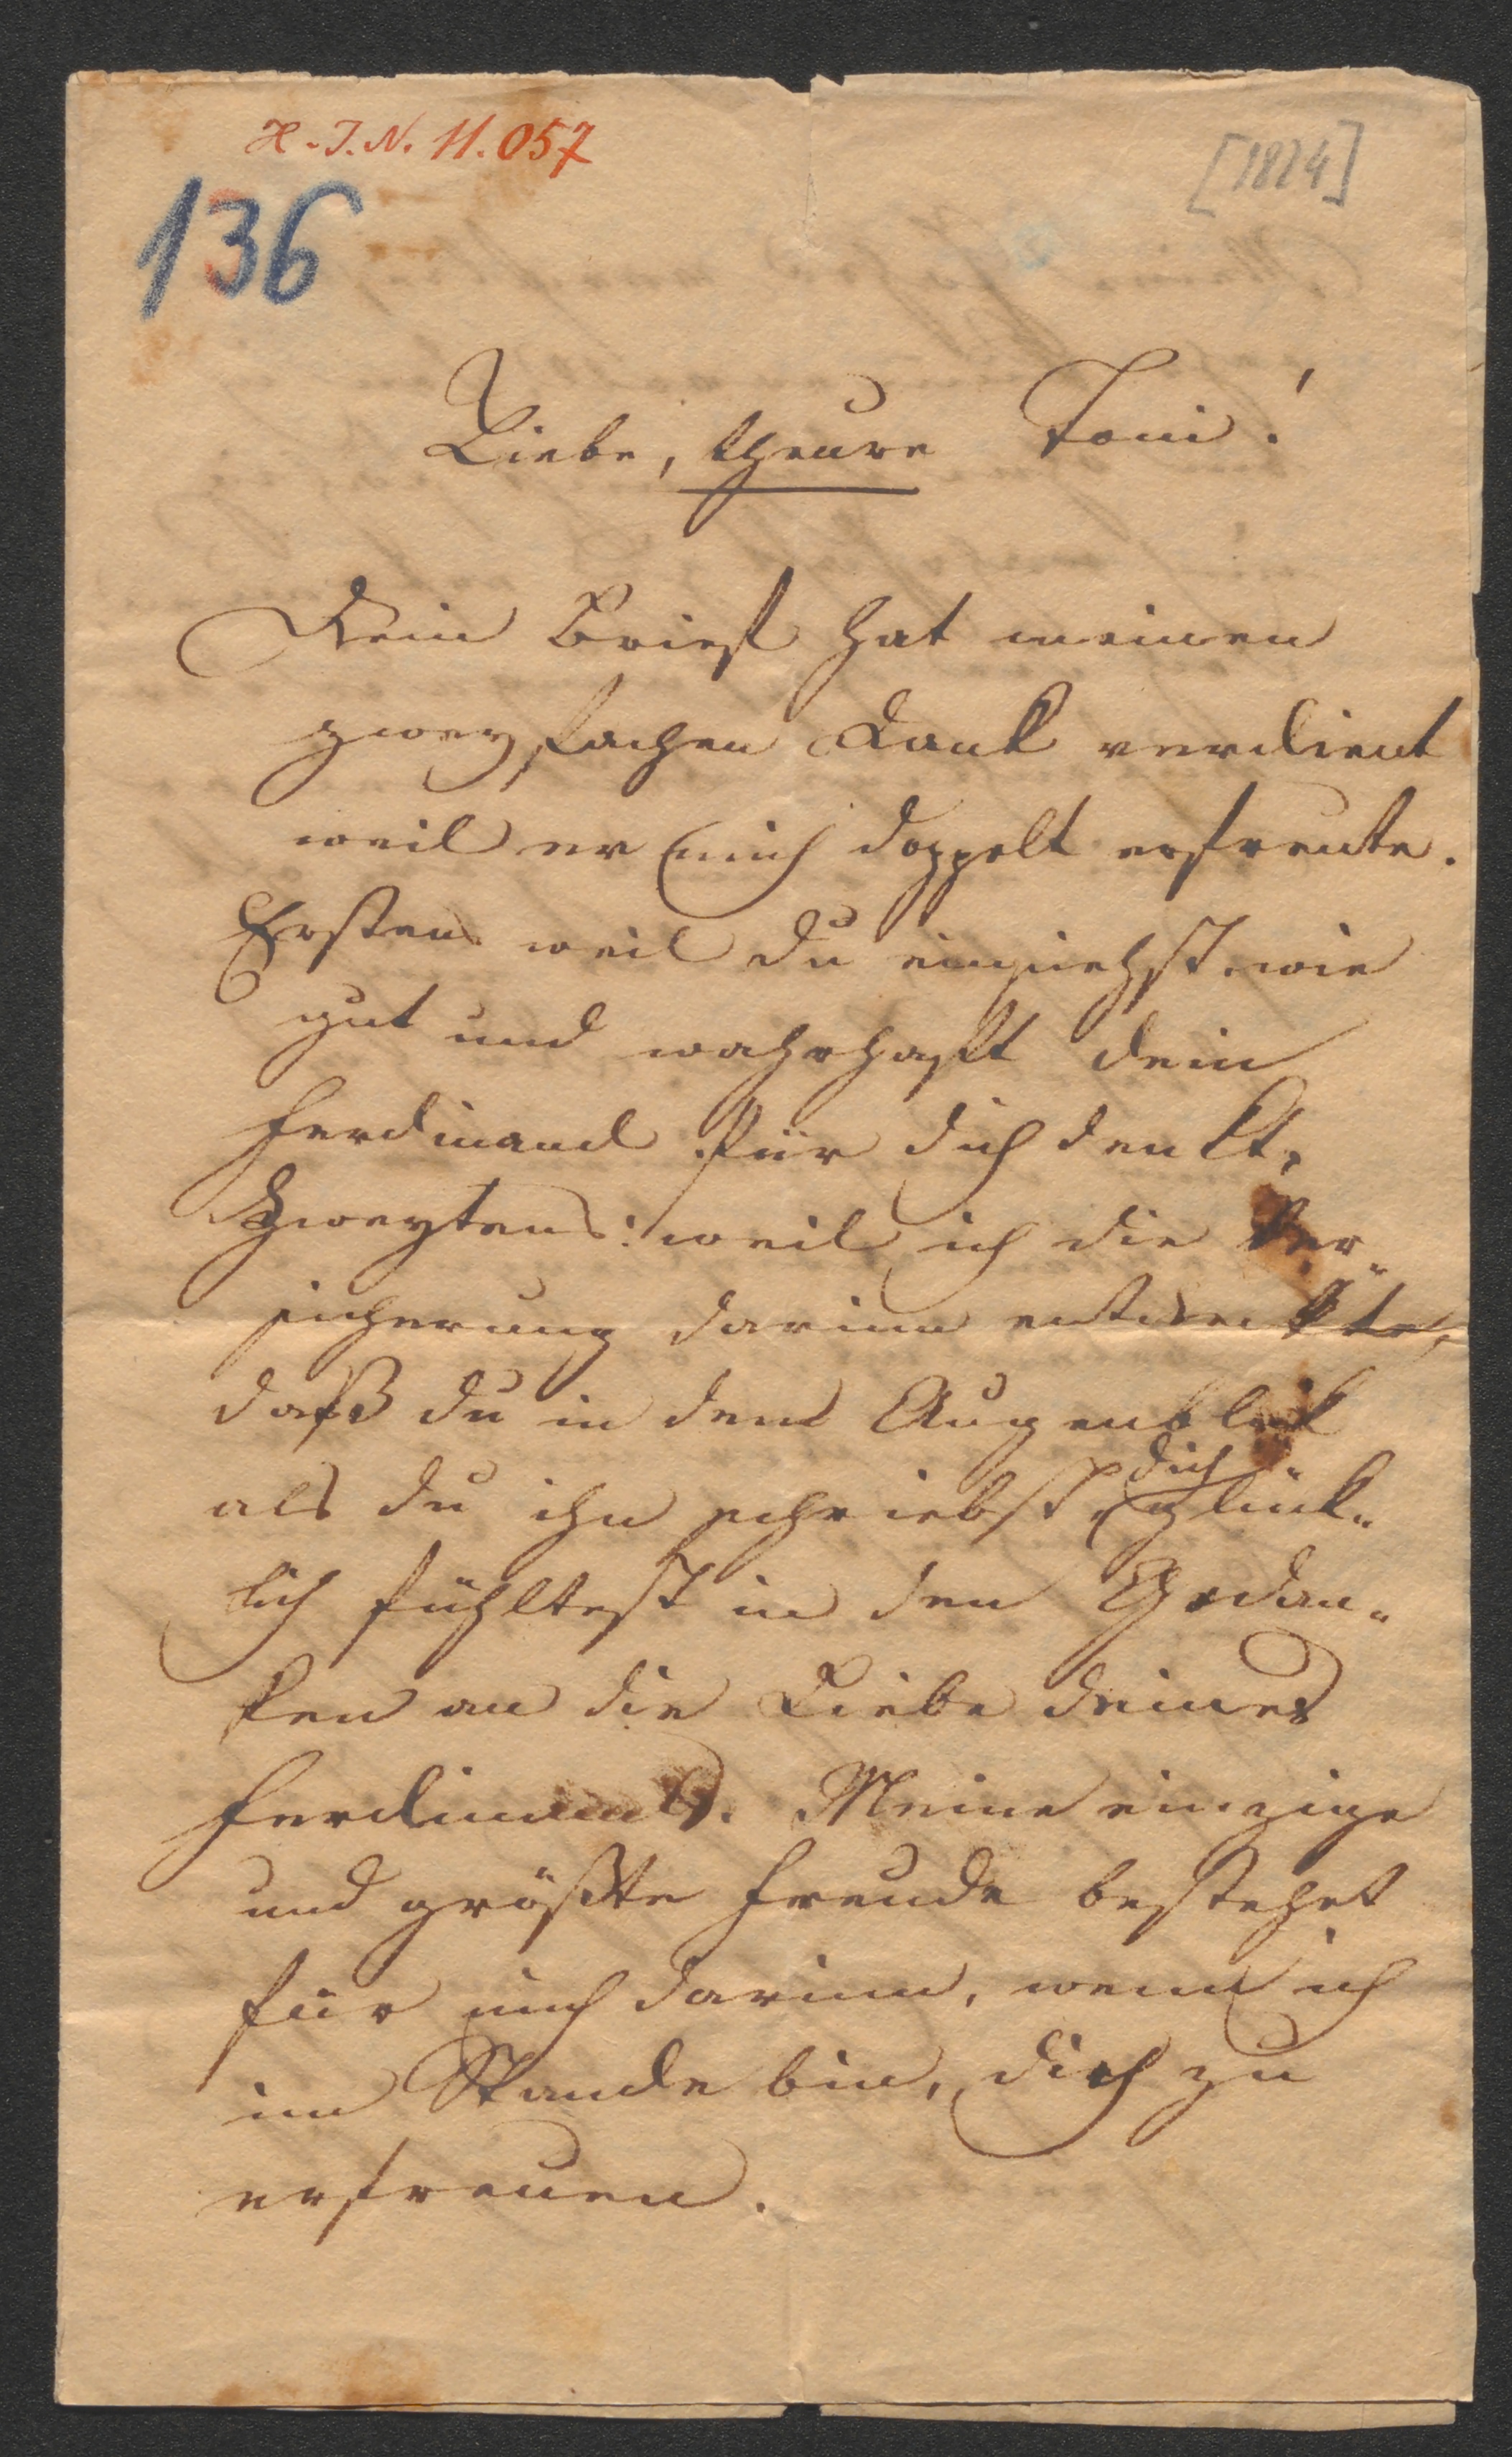 H.I.N. 11.057
[1824]
136
Liebe, theure Toni!
Dein Brief hat meinen
zweyfachen Dank verdient
weil er mich doppelt erfreute.
Erstens weil du einsiehst wie
gut und wahrhaft dein
Ferdinand für dich denkt,
Zweytens: weil ich die Ver„
sicherung darinn entdeckte,
daß du in dem Augenblick
als du ihn schriebst, dich glück„
lich fühltest in den Gedan„
ken an die Liebe deines
Ferdinands. Meine einzige
und größte Freude bestehet
für mich darinn, wenn ich
im Stande bin, dich zu
erfreuen.